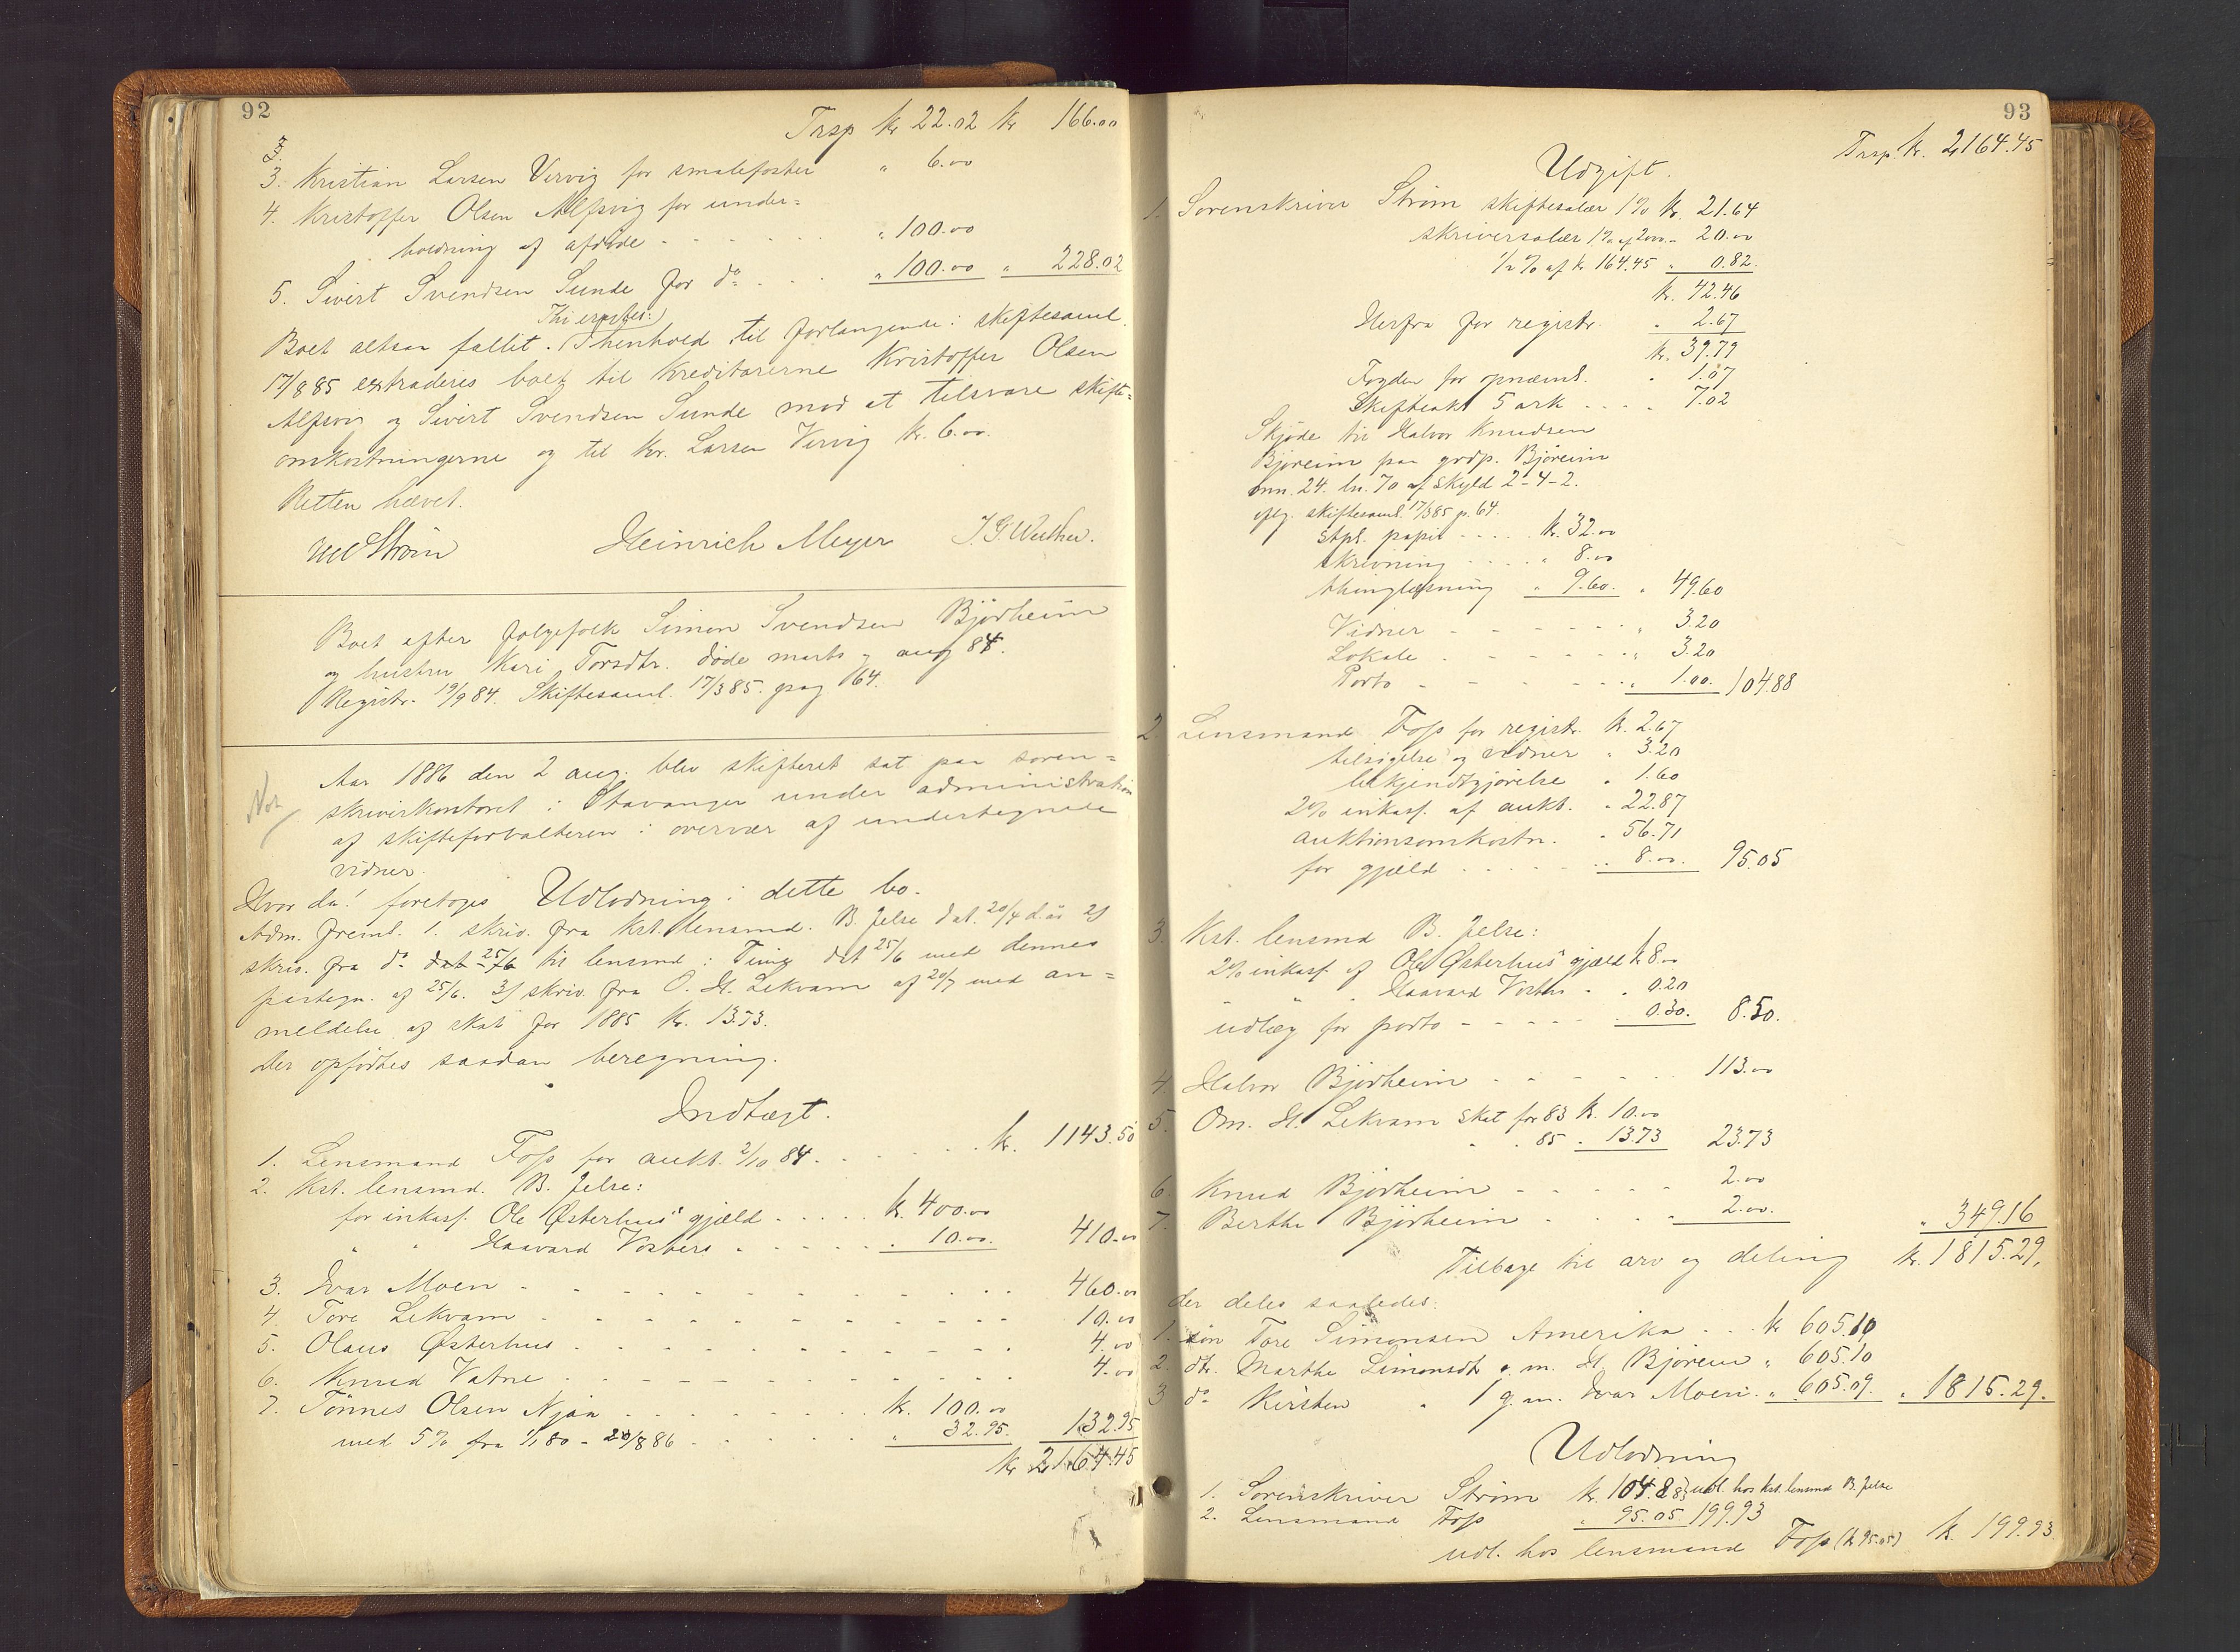 92
Trsp kr 22.02 kr 166.00
3. Kristian Larsen Vervig for smalefoster " 6.00
4. Kristoffer Olsen Alfsvig for under=
holdning af afdøde - - - " 100.00
5. Sivert Svendsen Sunde for do . . . " 100.00 " 228.02
Thi eragtes:
Boet altsaa fallit. I henhold til forlangende i skiftesaml.
17/8 85 extraderes boet til kreditorerne Kristoffer Olsen
Alfsvig og Sivert Svendsen Sunde mod at tilsvare skifte=
omkostningerne og til Kr. Larsen Vervig kr. 6.00.
Retten hævet.
Strøm Heinrich Meyer
Boet efter følgefolk Simon Svendsen Bjørheim
og hustru Kari Torsdtr. døde marts og aug 84.
Registr. 19/9 84. Skiftesaml. 17/3 85. pag 64.
Aar 1886 den 2 aug. blev skifteret sat paa soren=
skriverkontoret i Stavanger under administration
af skifteforvalteren i overvær af undertegnede
vidner.
Hvor da! foretoges Udlodning i dette bo.
Adm. freml. 1. skriv. fra kst. lensmd. B. Jelse dat. 20/4 d.år 2)
skriv. fra do dat 25/6 til lensmd i Time dat 25/6 med dennes
paategn. af 25/6. 3) skriv. fra O. H. Lekvam af 20/7 med an=
meldelse af skat for 1885 kr. 13.73.
Der opførtes saadan beregning.
Indtægt.
1. Lensmand Foss for aukt. 2/10 84 . . . . . kr. 1143.50
2. Kst. lensmd. B. Jelse:
for inkass. Ole Østerhus' gjæld . . . . kr. 400.00
" " Haavard Vosters . . . . " 10.00. 410.00
3. Ivar Moen - - - - - - - 460.00
4. Tore Lekvam - - - - - - 10.00
5. Olaus Østerhus . - - - - - 4.00
6. Knud Vatne - - - - - - 4.00
7. Tønnes Olsen Njaa - - - - kr. 100.00
med 5% fra 1/1 80 - 20/8 86 . . . . " 32.95. 132.95
kr 2164.45
93
Trsp. kr. 2164.45
Udgift.
1. Sorenskriver Strøm skiftesalær 1% kr. 21.64
skriversalær 1% af 2000 - 20.00
1/2 % af kr 164.45 " 0.82.
kr. 42.46
Herfra for registr. " 2.67
kr. 39.79
Fogden for opnævnl. " 1.07
Skifteakt 5 ark - - - - 7.02
Skjøde til Halvor Knudsen
Bjøreim paa grdp. Bjøreim
mn. 24. ln. 70 af skyld 2-4-2.
oflg. skiftesaml. 17/3 85 p. 64.
stpl. papir - - - - kr. 32.00
skrivning - - - - " 8.00
thinglæsning " 9.60. " 49.60
Vidner - - - - - - " 3.20
Lokale . - - - - - " 3.20
Porto - - - - - - " 1.00. 104.88
2. Lensmand Foss for registr. kr. 2.67
tilsigelse og vidner " 3.20
bekjendtgjørelse " 1.60
2% inkass. af aukt. " 22.87
auktionsomkostn. " 56.71
for gjæld . . . . . " 8.00. 95.05
3. Kst. lensmd B. Jelse:
2% inkass. af Ole Østerhus' gjæld kr 8.00
" " " Haavard Vosters - " 0.20
udlæg for porto - - - - - " 0.30. 8.50.
4. Halvor Bjørheim - - - - - 113.00
5. Om. H. Lekvam skat for 83 kr. 10.00
" " 85 " 13.73 23.73
6. Knud Bjørheim - - - - - 2.00
7. Berthe Bjørheim - - - - - 2.00. " 349.16
Tilbage til arv og deling kr. 1815.29.
der deles saaledes:
1. søn Tore Simonsen Amerika . . kr 605.10
2. dtr. Marthe Simonsdtr g. m. H. Bjøreim " 605.10
3 do Kirsten " g. m. Ivar Moen. " 605.09. " 1815.29.
Udlodning
1. Sorenskriver Strøm kr. 104.88 udl. hos kst. lensmd B. Jelse
2. Lensmand Foss " 95.05 199.93
udl. hos lensmand Foss (kr 95.05) kr. 199.93